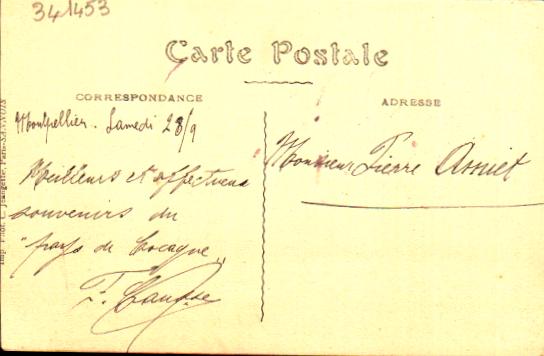 341453
Carte Postale
CORRESPONDANCE
ADRESSE
Montpellier. Samedi 28/9
Meilleurs et affectueux
souvenirs du
"pays de Cocagne"
Monsieur Pierre
Imp. Phot. Paris-SANNOIS